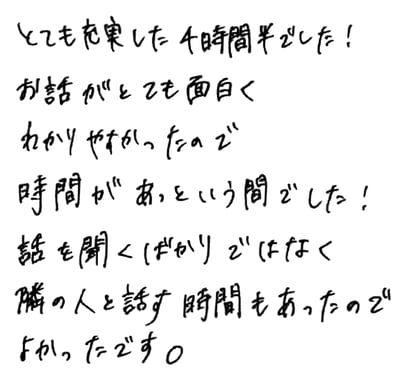 とても充実した4時間半でした!
お話がとても面白く
わかりやすかったので
時間があっという間でした!
話を聞くばかりではなく
隣の人と話す時間もあったので
よかったです。